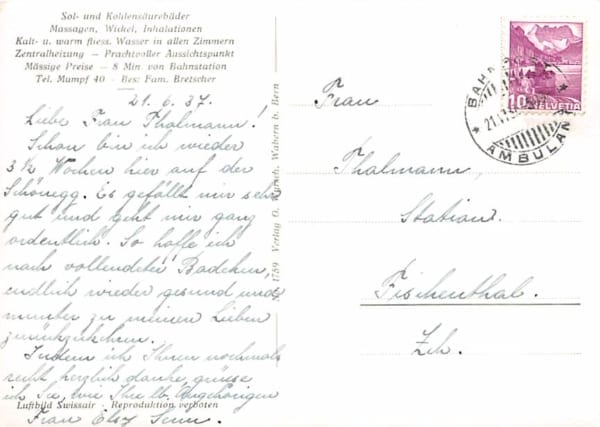 Sol- und Kohlensäurebäder
Massagen, Wickel, Inhalationen
Kalt- u. warm fliess. Wasser in allen Zimmern
Zentralheizung — Prachtvoller Aussichtspunkt
Mässige Preise — 8 Min. von Bahnstation
Tel. Mumpf 40 - Bes: Fam. Bretscher
21. 6. 37.
Liebe Frau Thalmann!
Schon bin ich wieder
3 ½ Wochen hier auf der
Schönegg. Es gefällt mir sehr
gut und geht mir ganz
ordentlich. So hoffe ich
nach vollendeter Badekur,
endlich wieder gesund und
munter zu meinen Lieben
zurückzukehren.
Indem ich Ihnen nochmals
recht herzlich danke, grüsse
ich Sie, wie Ihre lb. Angehörigen
Luftbild Swissair - Reproduktion verboten
Frau Elsy Senn.
1759 Verlag O. Wyrsch, Wabern b. Bern
Frau
Thalmann,
Station
Fischenthal.
Zch.
10 HELVETIA
BAHN
AMBULANT